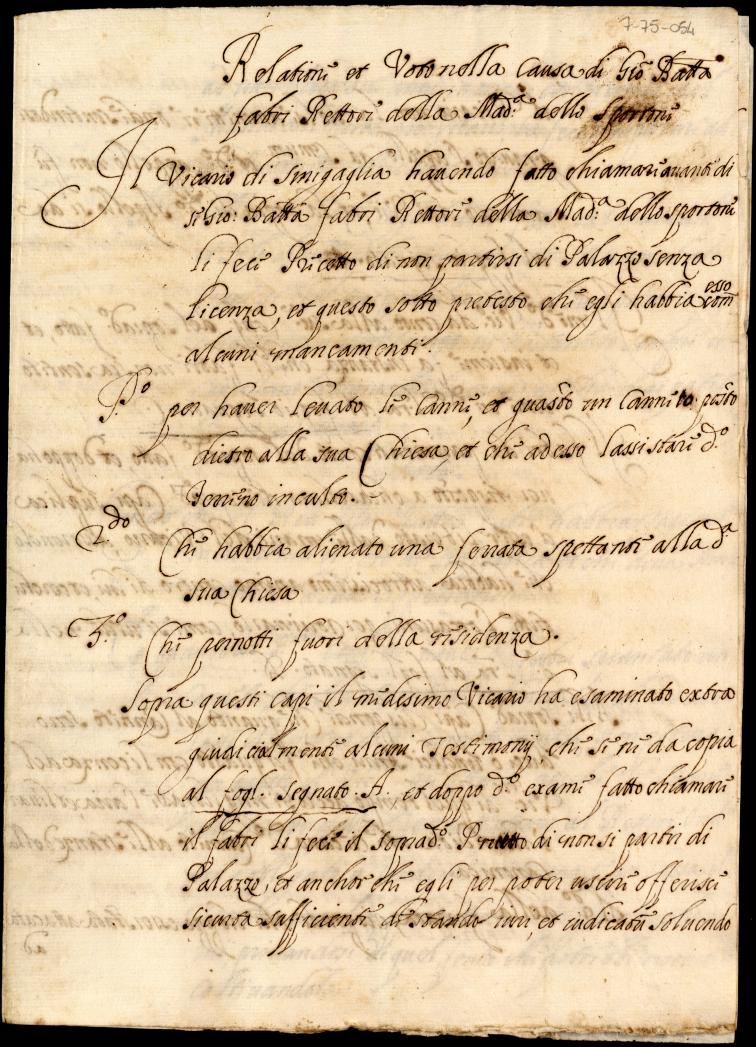 7-75-054
Relatione et Voto nella Causa di Gio Batta
fabri Rettore della Mad.a dello Sportone
Il Vicario di Sinigaglia havendo fatto chiamare avanti di
se Gio: Batta fabri Rettore della Mad.a dello sportone
li fece Precetto di non partirsi di Palazzo senza
licenza, et questo sotto pretesto che egli habbia esso
alcuni mancamenti.
P.o per haver levato le Canne, et guasto un Canneto posto
dietro alla sua Chiesa, et che adesso lassi stare d.o
Terreno inculto.
2.do Che habbia alienato una ferrata spettante alla d.a
sua Chiesa
3.o Che pernotti fuori della residenza.
Sopra questi capi il medesimo Vicario ha esaminato extra
giudicialmente alcuni Testimonij, che se ne da copia
al fogl. segnato. A. et doppo d.o esame fatto chiamare
il fabri li fece il soprad.o Precetto di non si partir di
Palazzo, et anchor che egli per poter uscire offerisce
sicurta sufficiente de stando iuri, et iudicatum solvendo